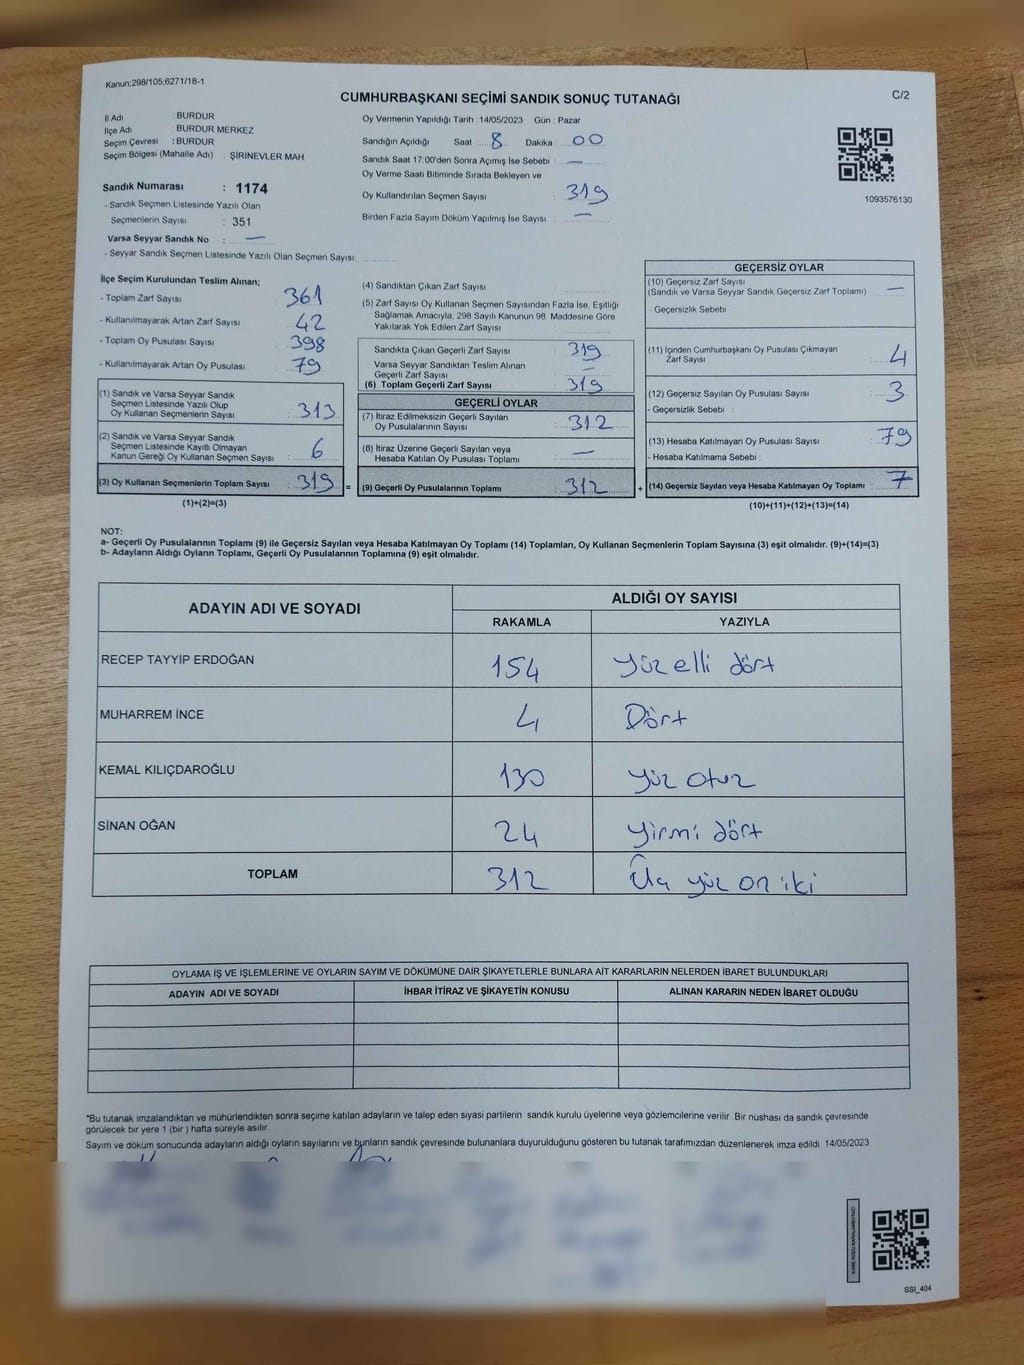 Kanun;298/105,6271/18-1
CUMHURBAŞKANI SEÇİMİ SANDIK SONUÇ TUTANAĞI
C/2
İl Adı : BURDUR
İlçe Adı : BURDUR MERKEZ
Seçim Çevresi : BURDUR
Seçim Bölgesi (Mahalle Adı) : ŞİRİNEVLER MAH.
Sandık Numarası : 1174
- Sandık Seçmen Listesinde Yazılı Olan
Seçmenlerin Sayısı : 351
Varsa Seyyar Sandık No : —
- Seyyar Sandık Seçmen Listesinde Yazılı Olan Seçmen Sayısı:
Oy Vermenin Yapıldığı Tarih : 14/05/2023 Gün : Pazar
Sandığın Açıldığı Saat : 8 Dakika : 00
Sandık Saat 17:00'den Sonra Açımış İse Sebebi : —
Oy Verme Saati Bitiminde Sırada Bekleyen ve
Oy Kullandırılan Seçmen Sayısı : 319
Birden Fazla Sayım Döküm Yapılmış İse Sayısı : —
1093576130
İlçe Seçim Kurulundan Teslim Alınan;
- Toplam Zarf Sayısı : 361
- Kullanılmayarak Artan Zarf Sayısı : 42
- Toplam Oy Pusulası Sayısı : 398
- Kullanılmayarak Artan Oy Pusulası : 79
(1) Sandık ve Varsa Seyyar Sandık
Seçmen Listesinde Yazılı Olup
Oy Kullanan Seçmenlerin Sayısı : 313
(2) Sandık ve Varsa Seyyar Sandık
Seçmen Listesinde Kayıtlı Olmayan
Kanun Gereği Oy Kullanan Seçmen Sayısı : 6
(3) Oy Kullanan Seçmenlerin Toplam Sayısı : 319 =
(1)+(2)=(3)
(4) Sandıktan Çıkan Zarf Sayısı :
(5) Zarf Sayısı Oy Kullanan Seçmen Sayısından Fazla İse, Eşitliği
Sağlamak Amacıyla, 298 Sayılı Kanunun 98. Maddesine Göre
Yakılarak Yok Edilen Zarf Sayısı :
Sandıkta Çıkan Geçerli Zarf Sayısı : 319
Varsa Seyyar Sandıktan Teslim Alınan
Geçerli Zarf Sayısı : —
(6) Toplam Geçerli Zarf Sayısı : 319
GEÇERLİ OYLAR
(7) İtiraz Edilmeksizin Geçerli Sayılan
Oy Pusulalarının Sayısı : 312
(8) İtiraz Üzerine Geçerli Sayılan veya
Hesaba Katılan Oy Pusulası Toplamı : —
(9) Geçerli Oy Pusulalarının Toplamı : 312 +
GEÇERSİZ OYLAR
(10) Geçersiz Zarf Sayısı
(Sandık ve Varsa Seyyar Sandık Geçersiz Zarf Toplamı) : —
- Geçersizlik Sebebi :
(11) İçinden Cumhurbaşkanı Oy Pusulası Çıkmayan
Zarf Sayısı : 4
(12) Geçersiz Sayılan Oy Pusulası Sayısı : 3
- Geçersizlik Sebebi :
(13) Hesaba Katılmayan Oy Pusulası Sayısı : 79
- Hesaba Katılmama Sebebi :
(14) Geçersiz Sayılan veya Hesaba Katılmayan Oy Toplamı : 7
(10)+(11)+(12)+(13)=(14)
NOT:
a- Geçerli Oy Pusulalarının Toplamı (9) ile Geçersiz Sayılan veya Hesaba Katılmayan Oy Toplamı (14) Toplamları, Oy Kullanan Seçmenlerin Toplam Sayısına (3) eşit olmalıdır. (9)+(14)=(3)
b- Adayların Aldığı Oyların Toplamı, Geçerli Oy Pusulalarının Toplamına (9) eşit olmalıdır.
ADAYIN ADI VE SOYADI
ALDIĞI OY SAYISI
RAKAMLA YAZIYLA
RECEP TAYYİP ERDOĞAN 154 Yüz elli dört
MUHARREM İNCE 4 Dört
KEMAL KILIÇDAROĞLU 130 Yüz otuz
SİNAN OĞAN 24 Yirmi dört
TOPLAM 312 Üç yüz on iki
OYLAMA İŞ VE İŞLEMLERİNE VE OYLARIN SAYIM VE DÖKÜMÜNE DAİR ŞİKAYETLERLE BUNLARA AİT KARARLARIN NELERDEN İBARET BULUNDUKLARI
ADAYIN ADI VE SOYADI İHBAR İTİRAZ VE ŞİKAYETİN KONUSU ALINAN KARARIN NEDEN İBARET OLDUĞU
*Bu tutanak imzalandıktan ve mühürlendikten sonra seçime katılan adayların ve talep eden siyasi partilerin sandık kurulu üyelerine veya gözlemcilerine verilir. Bir nüshası da sandık çevresinde
görülecek bir yere 1 (bir ) hafta süreyle asılır.
Sayım ve döküm sonucunda adayların aldığı oyların sayılarını ve bunların sandık çevresinde bulunanlara duyurulduğunu gösteren bu tutanak tarafımızdan düzenlenerek imza edildi. 14/05/2023
SSI_404